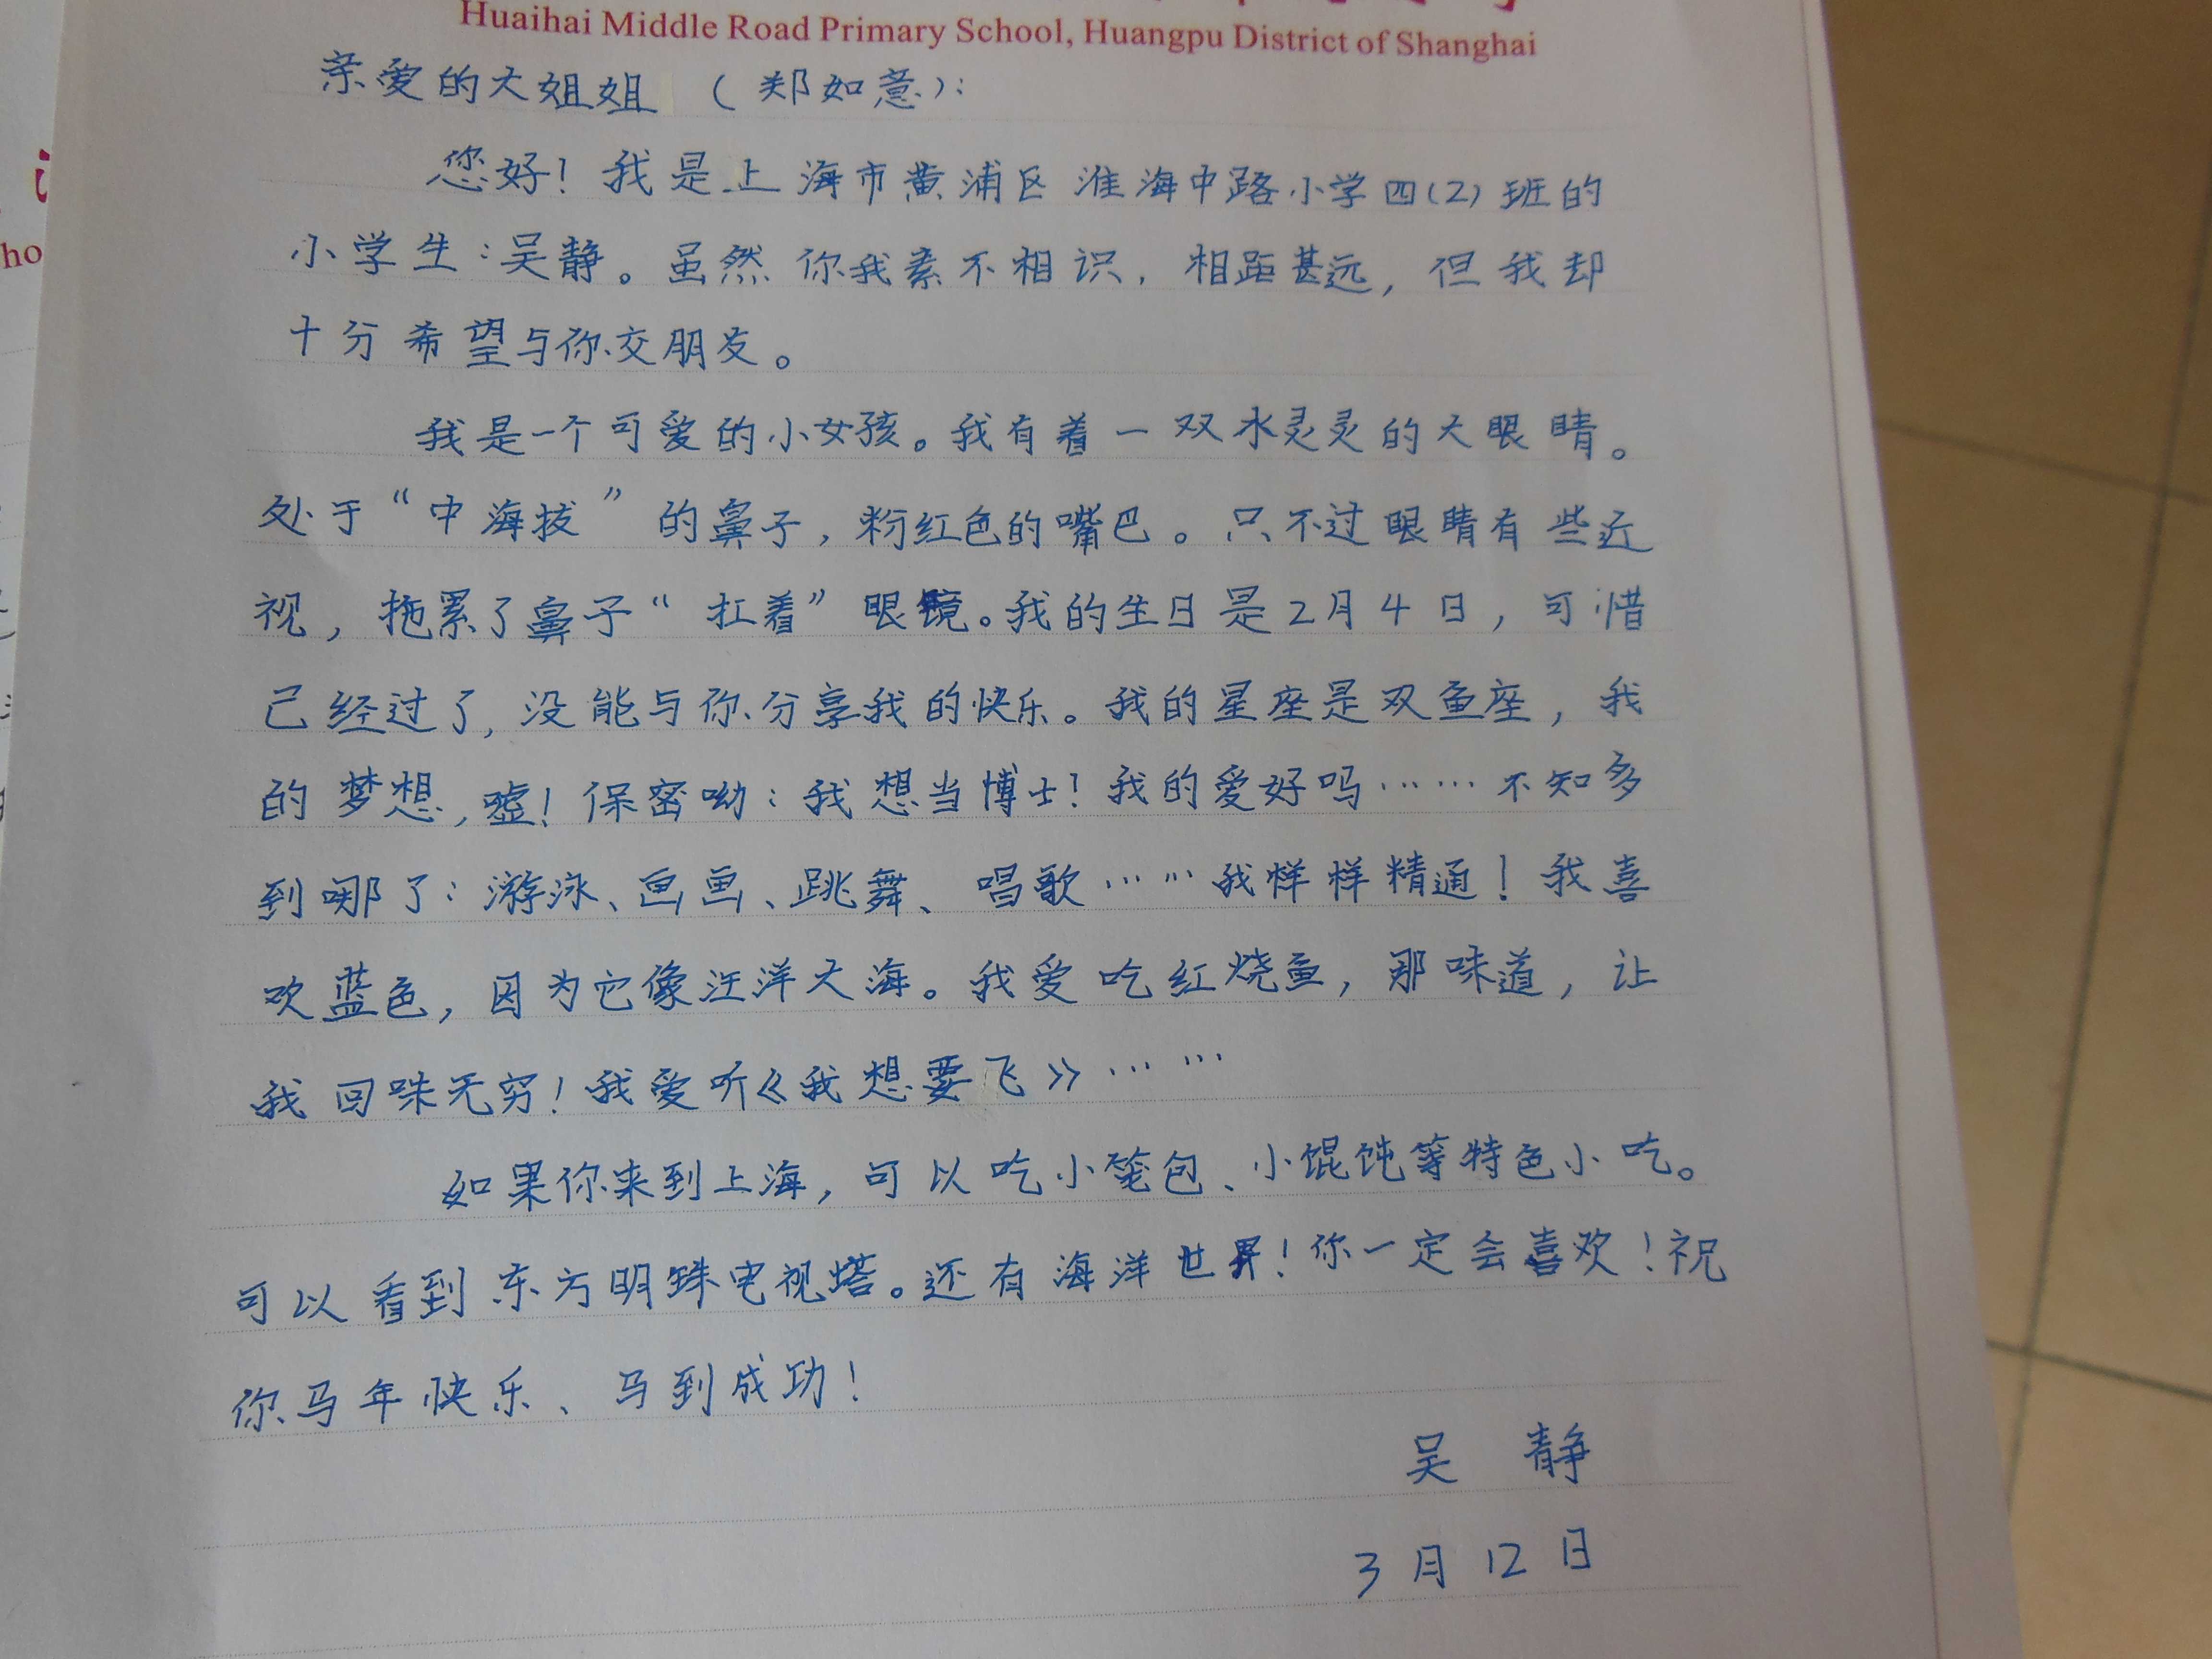 Huaihai Middle Road Primary School, Huangpu District of Shanghai
亲爱的大姐姐（郑如意）：
您好！我是上海市黄浦区淮海中路小学四(2)班的
小学生：吴静。虽然你我素不相识，相距甚远，但我却
十分希望与你交朋友。
我是一个可爱的小女孩。我有着一双水灵灵的大眼睛。
处于“中海拔”的鼻子，粉红色的嘴巴。只不过眼睛有些近
视，拖累了鼻子“扛着”眼镜。我的生日是2月4日，可惜
已经过了，没能与你分享我的快乐。我的星座是双鱼座，我
的梦想，嘘！保密呦：我想当博士！我的爱好吗……不知多
到哪了：游泳、画画、跳舞、唱歌……我样样精通！我喜
欢蓝色，因为它像汪洋大海。我爱吃红烧鱼，那味道，让
我回味无穷！我爱听《我想要飞》……
如果你来到上海，可以吃小笼包、小馄饨等特色小吃。
可以看到东方明珠电视塔。还有海洋世界！你一定会喜欢！祝
你马年快乐、马到成功！
吴 静
3月12日